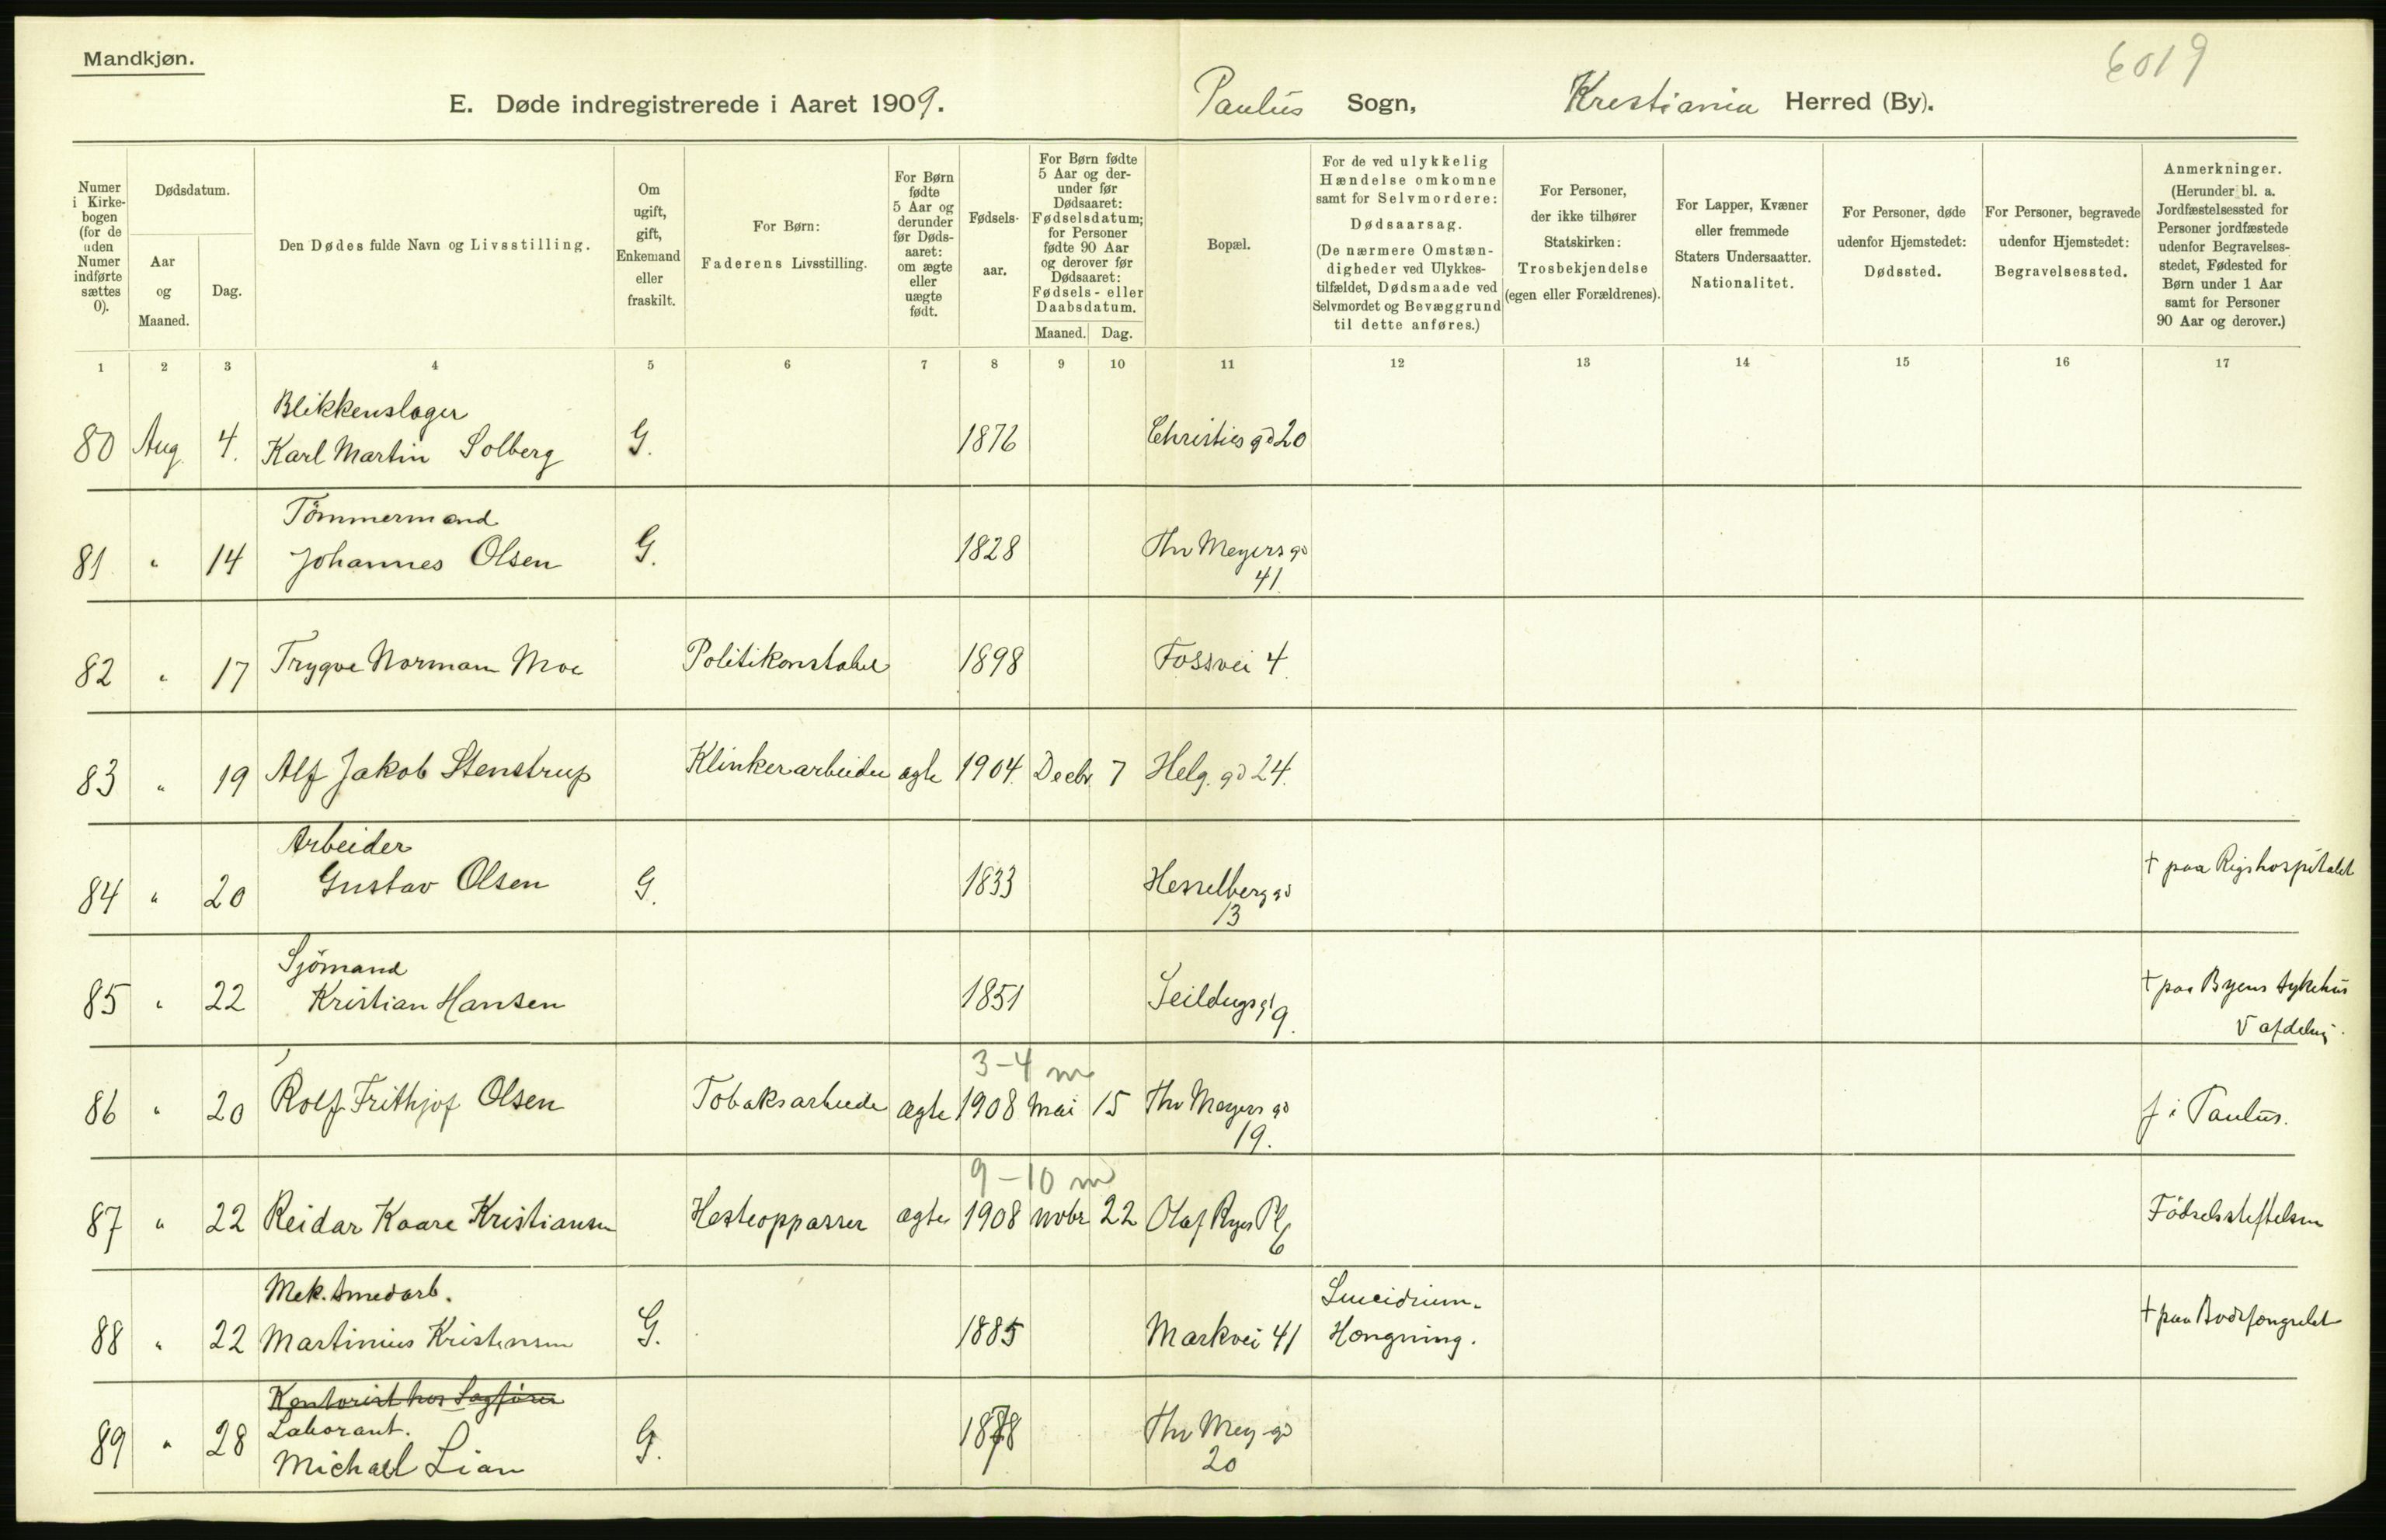 Mandkjøn.
6019
E. Døde indregistrerede i Aaret 1909.
Paulus Sogn,
Kristiania Herred (By).
Numer i Kirkebogen (for de uden Numer indførte sættes 0).
Dødsdatum.
Aar og Maaned.
Dag.
Den Dødes fulde Navn og Livsstilling.
Om ugift, gift, Enkemand eller fraskilt.
For Børn: Faderens Livsstilling.
For Børn fødte 5 Aar og derunder før Dødsaaret: om ægte eller uægte født.
Fødselsaar.
For Børn fødte 5 Aar og derunder før Dødsaaret: Fødselsdatum; for Personer fødte 90 Aar og derover før Dødsaaret: Fødsels- eller Daabsdatum.
Maaned. Dag.
Bopæl.
For de ved ulykkelig Hændelse omkomne samt for Selvmordere: Dødsaarsag. (De nærmere Omstændigheder ved Ulykkestilfældet, Dødsmaade ved Selvmordet og Bevæggrund til dette anføres.)
For Personer, der ikke tilhører Statskirken: Trosbekjendelse (egen eller Forældrenes).
For Lapper, Kvæner eller fremmede Staters Undersaatter. Nationalitet.
For Personer, døde udenfor Hjemstedet: Dødssted.
For Personer, begravede udenfor Hjemstedet: Begravelsessted.
Anmerkninger. (Herunder bl. a. Jordfæstelsessted for Personer jordfæstede udenfor Begravelsesstedet, Fødested for Børn under 1 Aar samt for Personer 90 Aar og derover.)
1 2 3 4 5 6 7 8 9 10 11 12 13 14 15 16 17
Blikkenslager
80 Aug 4. Karl Martin Solberg G. 1876 Christies gd 20
Tömmermand
81 " 14 Johannes Olsen G. 1828 Thv Meyers gd
41.
82 " 17 Trygve Norman Moe Politikonstabel 1898 Fossvei 4
83 " 19 Alf Jakob Stenstrup Klinkerarbeider ægte 1904. Decbr 7 Helg. gd 24.
Arbeider
84 " 20 Gustav Olsen G. 1833 Hesselberg gd
13
† paa Rigshospitalet
Sjömand
85 " 22 Kristian Hansen 1851 Seildugsgd 9.
† paa Byens Sykehus
V afdeling.
3-4 m
86 " 20 Rolf Frithjof Olsen Tobaksarbeide ægte 1908 Mai 15 Thv Meyers gd
19.
f i Paulus.
9-10 m
87 " 22 Reidar Kaare Kristiansen Hesteopparser ægte 1908 Novbr 22 Olaf Ryes Pl 6
Födselsstiftelsen
Mek. Smedarb. Suicidium.
88 " 22 Martinius Kristensen G. 1885 Markvei 41 Hængning.
† paa Bodsfængselet
Kontorist hos Sagfører
Laborant.
89 " 28 Michael Lian G. 1878 Thv Mey gd
20